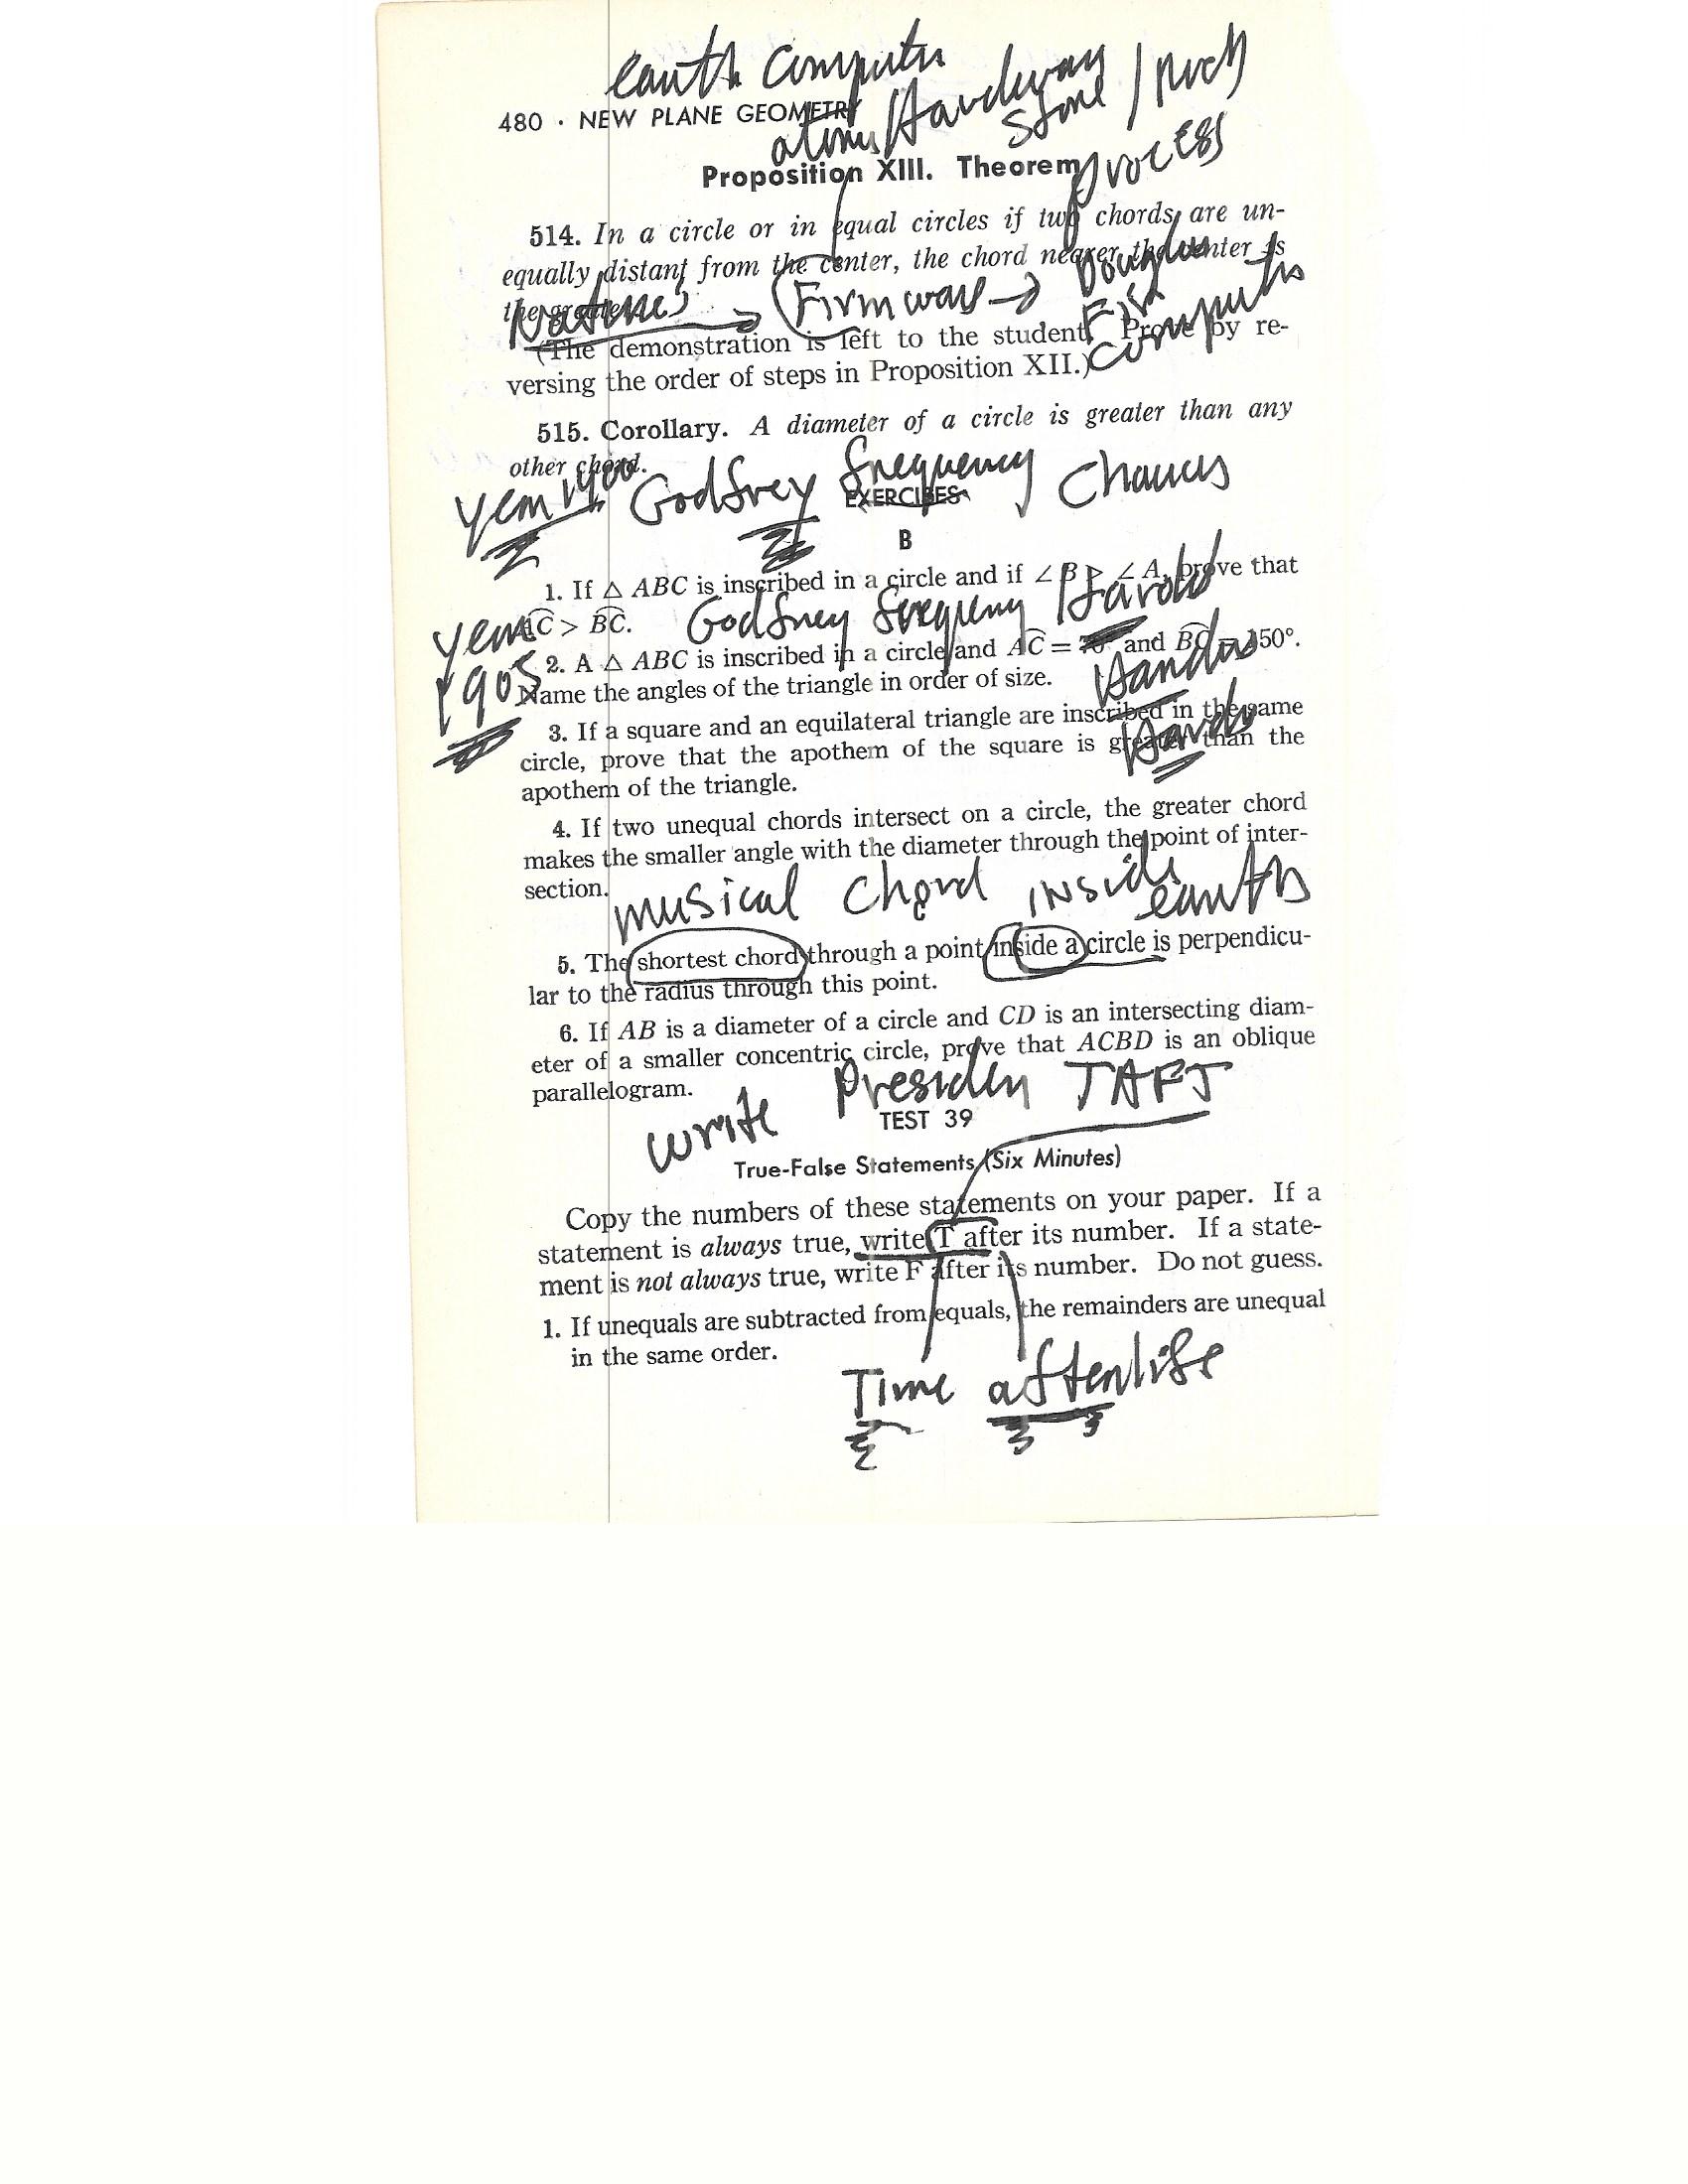 earth Computer
Hardware stone / Rock
480 · NEW PLANE GEOMETRY
atoms
process
Proposition XIII. Theorem
514. In a circle or in equal circles if two chords are un-
equally distant from the center, the chord nearer the center is
the greater.
Firmware
First
Computers
(The demonstration is left to the student. Prove by re-
versing the order of steps in Proposition XII.)
515. Corollary. A diameter of a circle is greater than any
other chord.
year 1900 Godfrey frequency
EXERCISES
B
1. If △ ABC is inscribed in a circle and if ∠ B > ∠ A, prove that
AC > BC.
Godfrey frequency Harold
year
1905
2. A △ ABC is inscribed in a circle and AC = 70° and BC = 150°.
Name the angles of the triangle in order of size.
3. If a square and an equilateral triangle are inscribed in the same
circle, prove that the apothem of the square is greater than the
apothem of the triangle.
4. If two unequal chords intersect on a circle, the greater chord
makes the smaller angle with the diameter through the point of inter-
section.
musical Chord inside
earth
5. The shortest chord through a point inside a circle is perpendicu-
lar to the radius through this point.
6. If AB is a diameter of a circle and CD is an intersecting diam-
eter of a smaller concentric circle, prove that ACBD is an oblique
parallelogram.
write Presiden TAFT
TEST 39
True-False Statements (Six Minutes)
Copy the numbers of these statements on your paper. If a
statement is always true, write T after its number. If a state-
ment is not always true, write F after its number. Do not guess.
1. If unequals are subtracted from equals, the remainders are unequal
in the same order.
Time afterlife